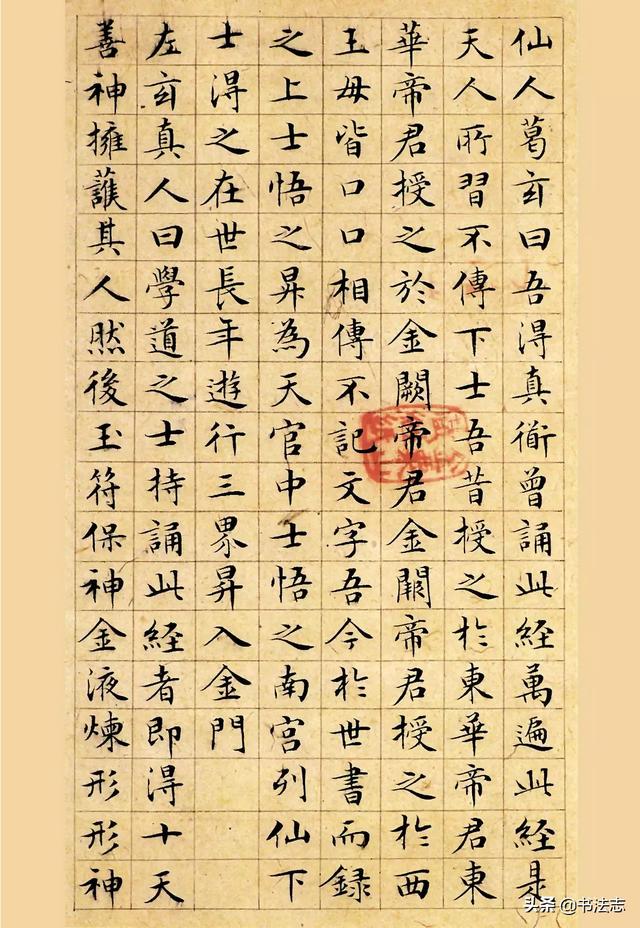 仙人葛玄曰吾得真衜曾誦此經萬遍此經是
天人所習不傳下士吾昔授之於東華帝君東
華帝君授之於金闕帝君金闕帝君授之於西
王母皆口口相傳不記文字吾今於世書而録
之上士悟之昇為天官中士悟之南宮列仙下
士得之在世長年遊行三界昇入金門
左玄真人曰學道之士持誦此經者即得十天
善神擁護其人然後玉符保神金液煉形形神
头条 @书法志